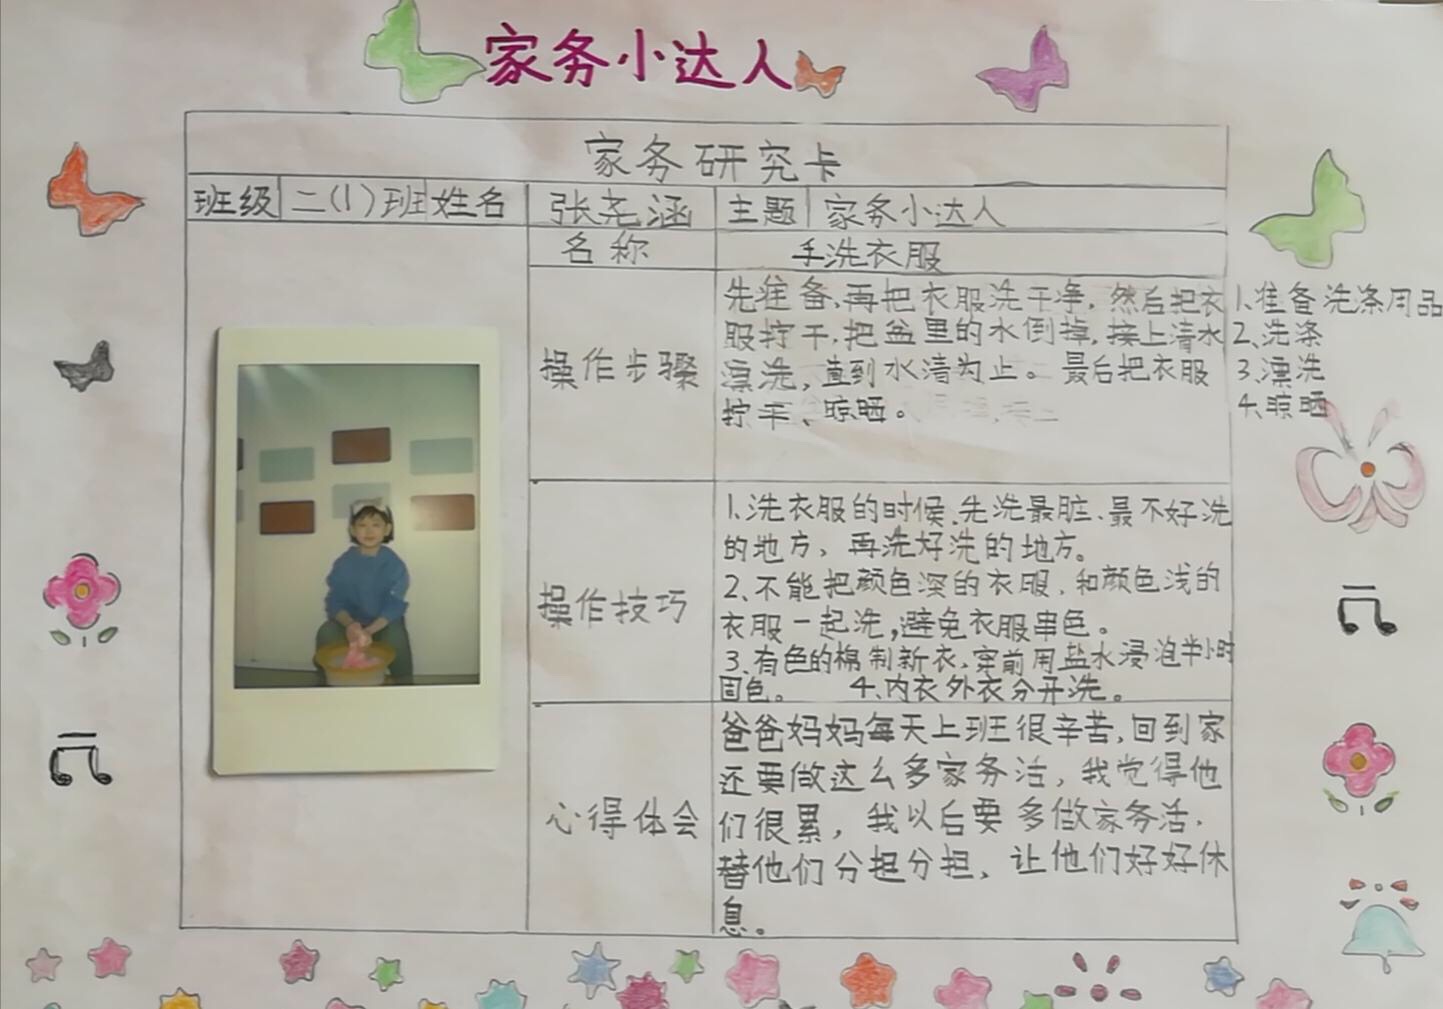 家务小达人
家务研究卡
班级 二(1)班 姓名 张尧涵 主题 家务小达人
名称 手洗衣服
操作步骤
先准备、再把衣服洗干净，然后把衣
服拧干，把盆里的水倒掉，接上清水
漂洗，直到水清为止。最后把衣服
拧干、晾晒。
1、准备洗涤用品
2、洗涤
3、漂洗
4、晾晒
操作技巧
1、洗衣服的时候、先洗最脏、最不好洗
的地方、再洗好洗的地方。
2、不能把颜色深的衣服、和颜色浅的
衣服一起洗，避免衣服串色。
3、有色的棉制新衣、穿前用盐水浸泡半小时
固色。 4、内衣外衣分开洗。
心得体会
爸爸妈妈每天上班很辛苦，回到家
还要做这么多家务活，我觉得他
们很累，我以后要多做家务活、
替他们分担分担，让他们好好休
息。